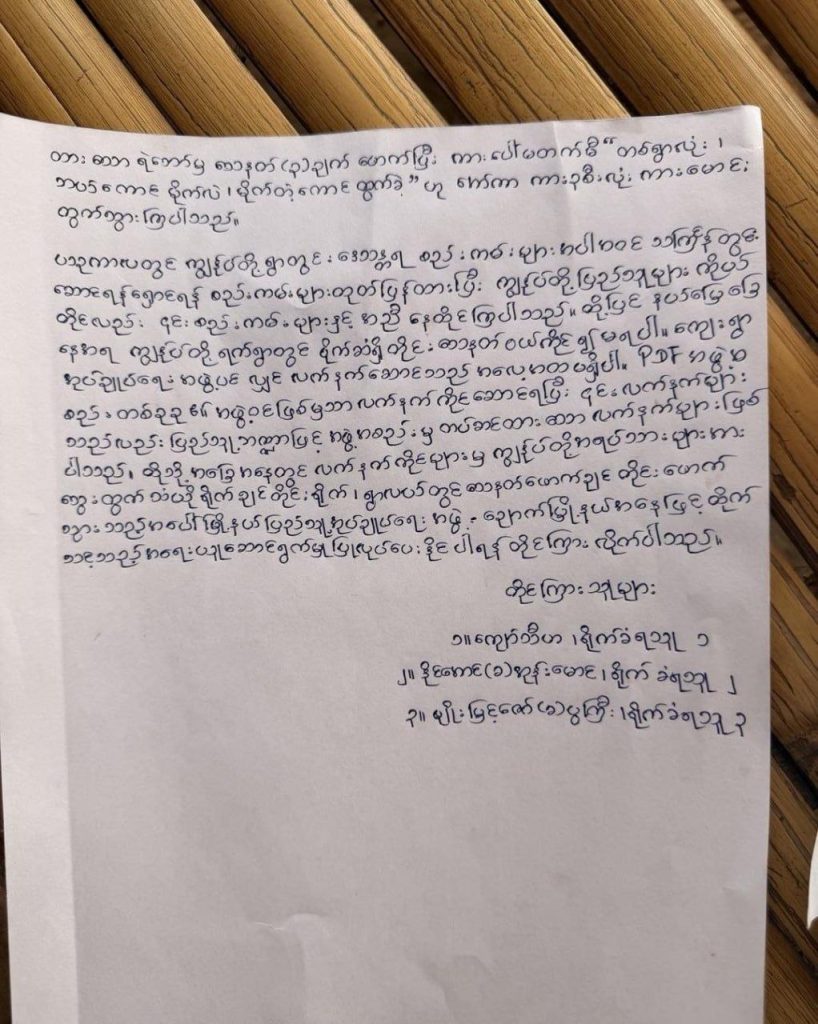 ထား သော ရဲဘော်မှ သေနတ် (၃)ချက် ဖောက်ပြီး ကားပေါ်မတက်မီ "တစ်ရွာလုံး ၊
ဘယ်ကောင် ရိုက်လဲ ၊ ရိုက်တဲ့ကောင် ထွက်ခဲ့" ဟု အော်ကာ ကား၃စီးလုံး ကားမောင်း
ထွက်သွားကြပါသည်။
ယခုကာလတွင် ကျွန်ုပ်တို့ ရွာတွင် ဒေသန္တရ စည်းကမ်းများအပါအဝင် သင်္ကြန်တွင်း
ဆောင်ရန်ရှောင်ရန် စည်းကမ်းများထုတ်ပြန်ထားပြီး ကျွန်ုပ်တို့ပြည်သူများ ကိုယ်
တိုင်လည်း ၎င်းစည်းကမ်းများနှင့် အညီ နေထိုင်ကြပါသည်။ ထို့ပြင် နယ်မြေခြေ
နေအရ ကျွန်ုပ်တို့ ရက်ရွာတွင် စိုက်ဆံရှိတိုင်း သေနတ် ဝယ်ကိုင်၍ မရပါ။ ကျေးရွာ
အုပ်ချုပ်ရေး အဖွဲ့ပင် လျှင် လက်နက်ဆောင်သည့် အလေ့အထမရှိပါ။ PDF အဖွဲ့အ
စည်း တစ်ခုခု ၏ အဖွဲ့ဝင်ဖြစ်မှသာ လက်နက် ကိုင်ဆောင်ရပြီး ၎င်းလက်နက်များ
သည်လည်း ပြည်သူ့ဘဏ္ဍာဖြင့် အဖွဲ့အစည်းမှ တပ်ဆင်ထား သော လက်နက်များ ဖြစ်
ပါသည်။ ထိုသို့ အခြေအနေတွင် လက်နက်ကိုင်များမှ ကျွန်ုပ်တို့အရပ်သားများအား
သွေးထွက် သံယို ရိုက်ချင်တိုင်းရိုက် ၊ ရွာလယ်တွင် သေနတ်ဖောက်ချင် တိုင်း ဖောက်
သွား သည့်အပေါ် မြို့နယ်ပြည်သူ့အုပ်ချုပ်ရေး အဖွဲ့ - ချောက်မြို့နယ်အနေဖြင့် ထိုက်
သင့်သည့်အရေးယူဆောင်ရွက်မှု ပြုလုပ်ပေးနိုင်ပါရန် တိုင်ကြား လိုက်ပါသည်။
တိုင်ကြား သူများ
၁။ ကျော်ဘီဟ ၊ရိုက်ခံရသူ ၁
၂။ နိုင်အောင်(ခ)အုန်းမောင် ၊ရိုက် ခံရသူ ၂
၃။ မျိုးမြင့်ဇော် (ခ)ပွကြီး ၊ရိုက်ခံရသူ ၃